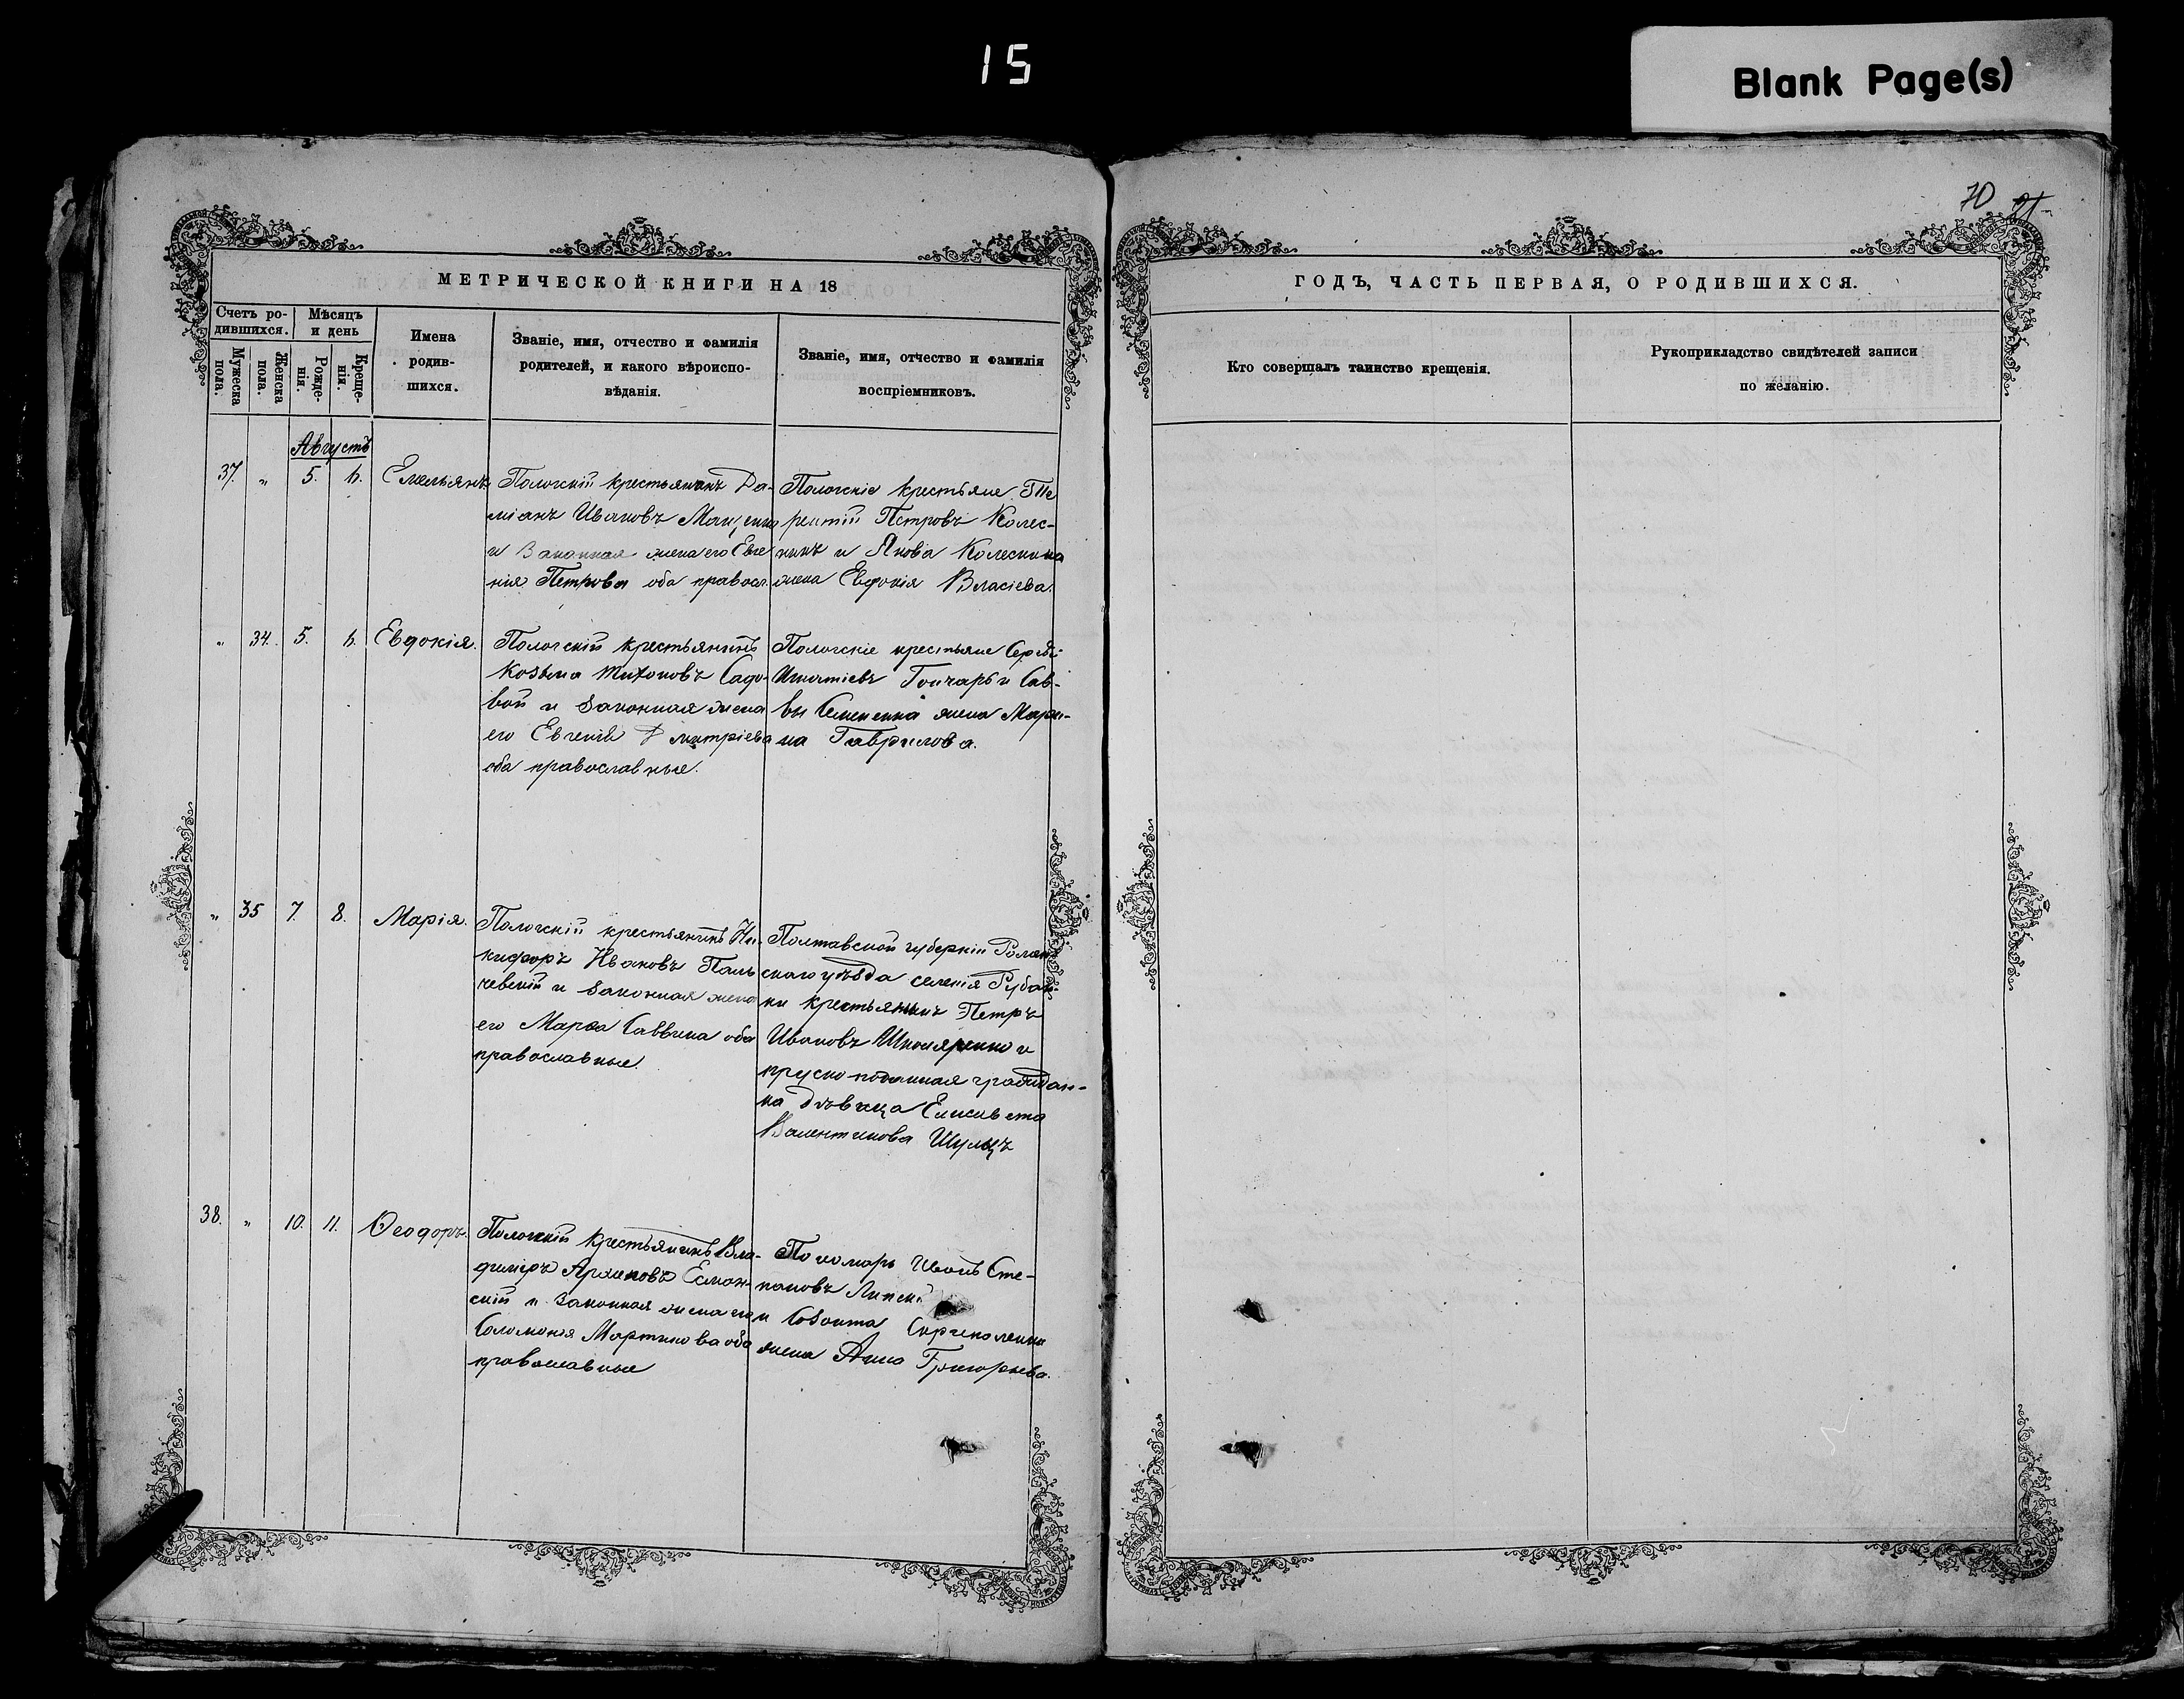 15
Blank Page(s)
70
МЕТРИЧЕСКОЙ КНИГИ НА 18
ГОДЪ, ЧАСТЬ ПЕРВАЯ, О РОДИВШИХСЯ.
Счетъ ро-
дившихся.
Мѣсяцъ
и день
Мужеска
пола.
Женска
пола.
Рожде-
нія.
Креще-
нія.
Имена
родив-
шихся.
Званіе, имя, отчество и фамилія
родителей, и какого вѣроиспо-
вѣданія.
Званіе, имя, отчество и фамилія
воспріемниковъ.
Кто совершалъ таинство крещенія.
Рукоприкладство свидѣтелей записи
по желанію.
Августъ
37. " 5. 6. Емельянъ.
Пологскій крестьянинъ Да-
міанъ Ивановъ
и Законная жена его Евге
нія Петрова оба правосл.
Пологскіе крестьяне Те
рентій Петровъ Колес-
никъ и Якова Колесника
жена Евдокія Власіева.
" 34. 5. 6. Евдокія.
Пологскій крестьянинъ
Козьма Тихоновъ Садо-
вой и Законная жена
его Евгенія Дмитріева
оба православные.
Пологскіе крестьяне Сергѣй
Игнатіевъ Гончаръ и Сав-
вы Семенина жена Мари-
на Гаврилова.
" 35 7. 8. Марія.
Пологскій крестьянинъ Ни-
кифоръ Ивановъ Паль
чевскій и Законная жена
его Марфа Саввина оба
православные.
Полтавской губерніи Роменъ
скаго уѣзда селенія Рубан-
ки крестьянинъ Петръ
Ивановъ Школяренко и
пруско подданная граждан-
ка дѣвица Елисавета
Валентинова Шульцъ
38. " 10. 11. Ѳеодоръ.
Пологскій крестьянинъ Вла-
диміръ Архиповъ Есман-
скій и Законная жена его
Соломонія Мартинова оба
православные
Пономарь Иванъ Сте-
пановъ Липскі
и Созонта
жена Анна Григорьева.